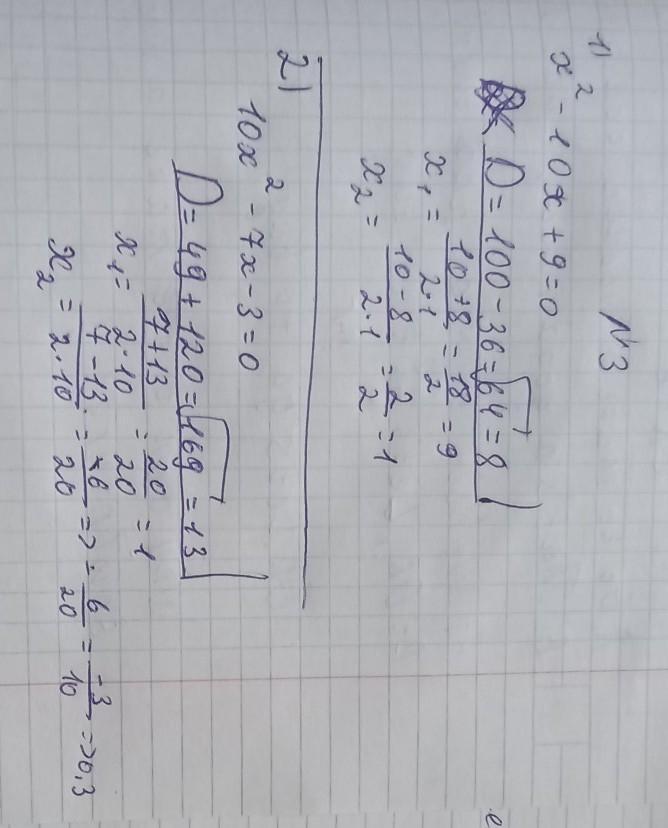 N3
1)
x² - 10x + 9 = 0
D = 100 - 36 = √64 = 8
x₁ = (10+8)/(2·1) = 18/2 = 9
x₂ = (10-8)/(2·1) = 2/2 = 1
2)
10x² - 7x - 3 = 0
D = 49 + 120 = √169 = 13
x₁ = (7+13)/(2·10) = 20/20 = 1
x₂ = (7-13)/(2·10) = -6/20 => -6/20 = -3/10 => 0,3